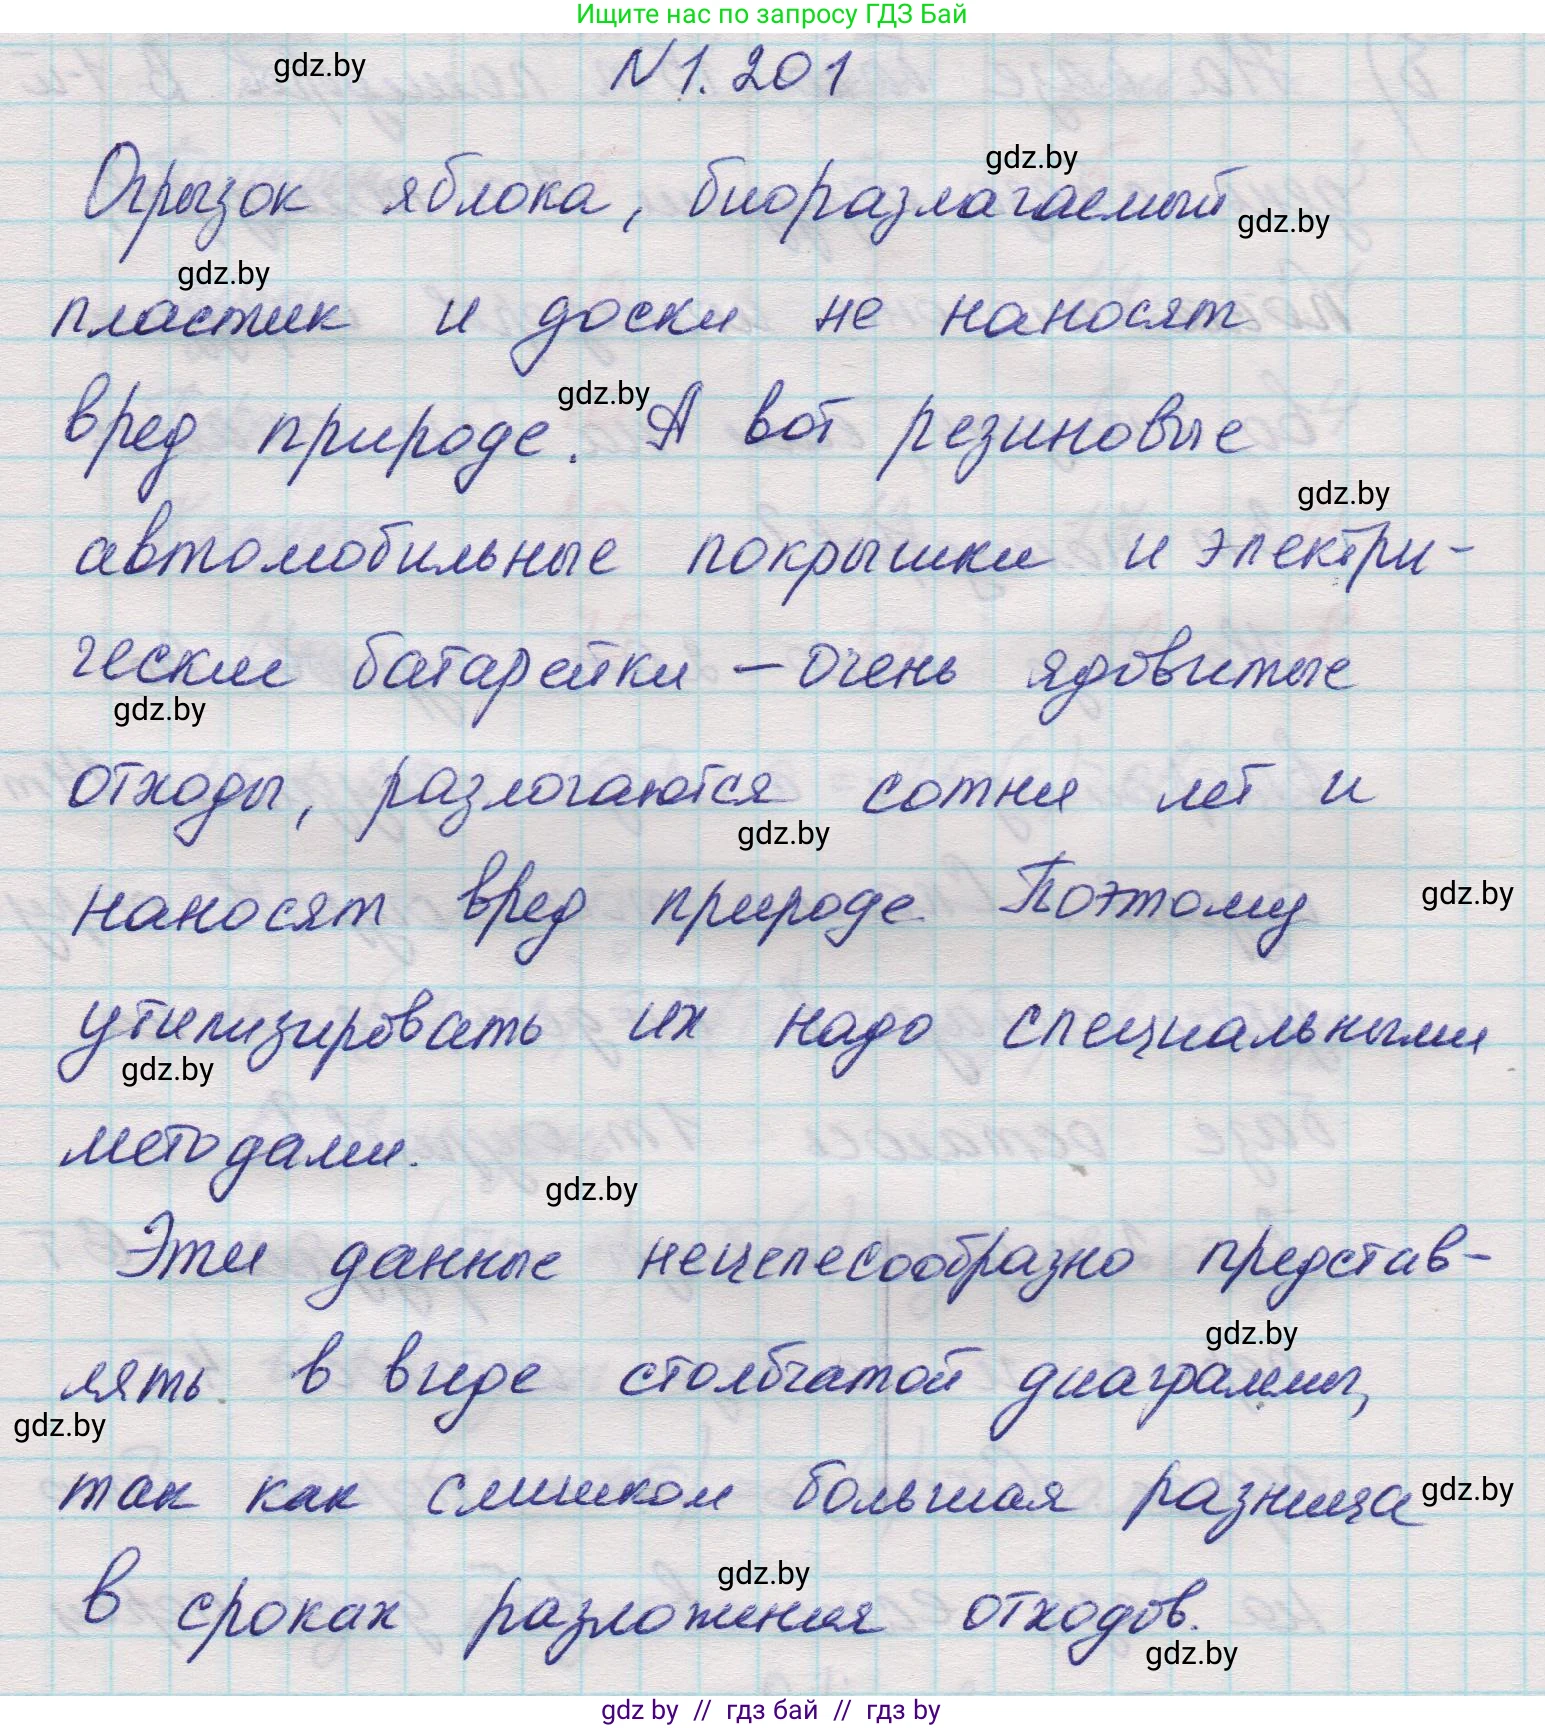 Ищите нас по запросу ГДЗ Бай
gdz.by
N 1. 201
gdz.by
Огрызок яблока, биоразлагаемый
gdz.by
gdz.by
пластик и доски не наносят
gdz.by
вред природе. А вот резиновые
gdz.by
автомобильные покрышки и электри-
ческие батарейки – очень ядовитые
gdz.by
отходы, разлогаются сотни лет и
gdz.by
наносят вред природе. Поэтому
gdz.by
утилизировать их надо специальными
gdz.by
методами.
gdz.by
Эти данные нецелесообразно представ-
gdz.by
лять в виде столбчатой диаграммы,
gdz.by
так как слишком большая разница
gdz.by
gdz.by
в сроках разложения отходов.
gdz.by
gdz by // гдз бай // гдз by